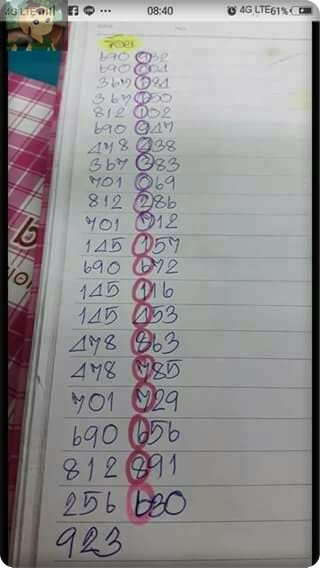 4G LTE 08:40 4G LTE 61%
690 932
690 604
367 184
367 150
812 102
690 947
478 438
367 383
701 069
812 286
701 712
145 157
690 672
145 116
145 453
478 863
478 785
701 729
690 656
812 891
256 680
923